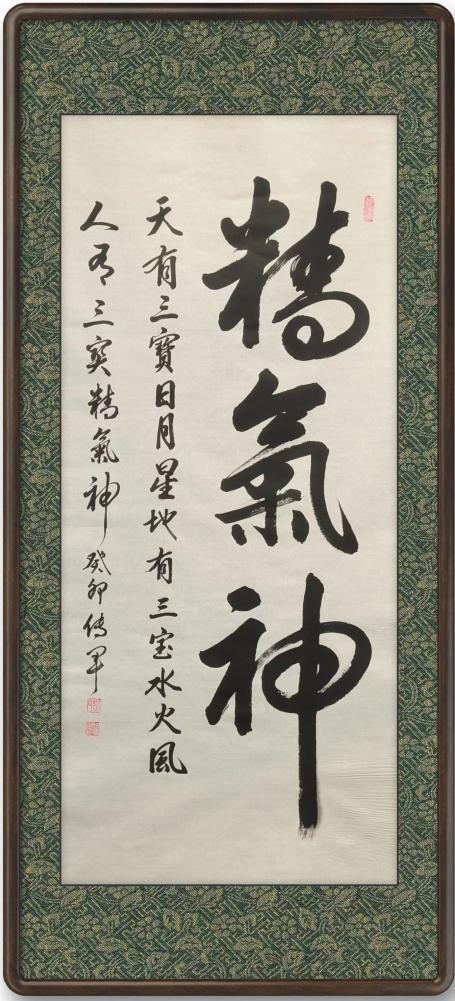 精氣神
天有三寶日月星地有三宝水火風
人有三寶精氣神癸卯傳軍